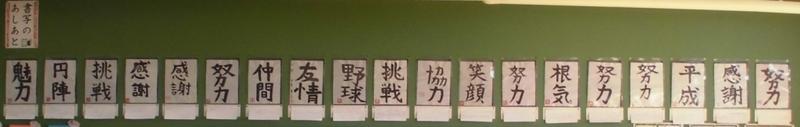 書写の
あしあと
魅力
円陣
挑戦
感謝
感謝
努力
仲間
友情
野球
挑戦
協力
笑顔
努力
根気
努力
努力
平成
感謝
努力